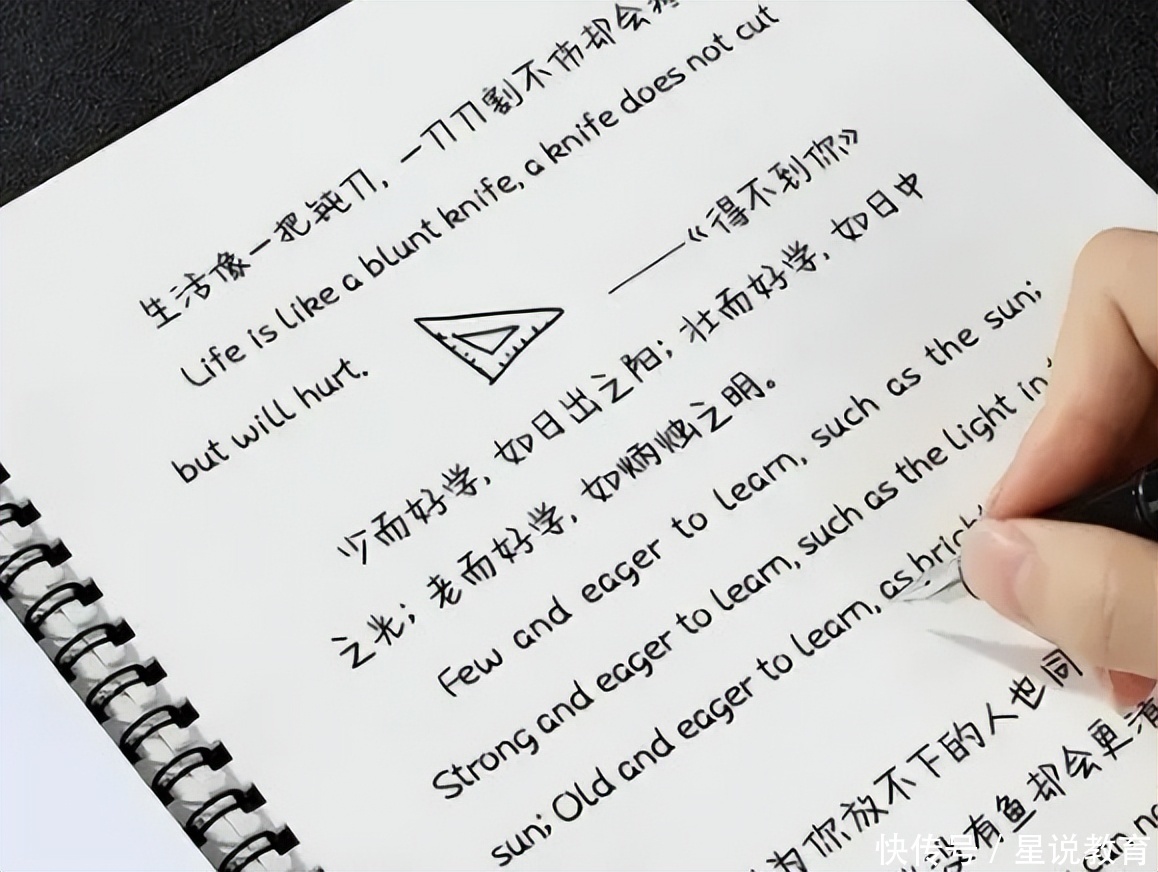 生活像一把钝刀，一刀刀割不伤却会疼
Life is like a blunt knife, a knife does not cut
but will hurt.
——《得不到你》
少而好学，如日出之阳；壮而好学，如日中
之光；老而好学，如炳烛之明。
Few and eager to learn, such as the sun;
Strong and eager to learn, such as the light in
sun; Old and eager to learn, as brigh
为你放不下的人也同
没有鱼却会更清
快传号 / 星说教育